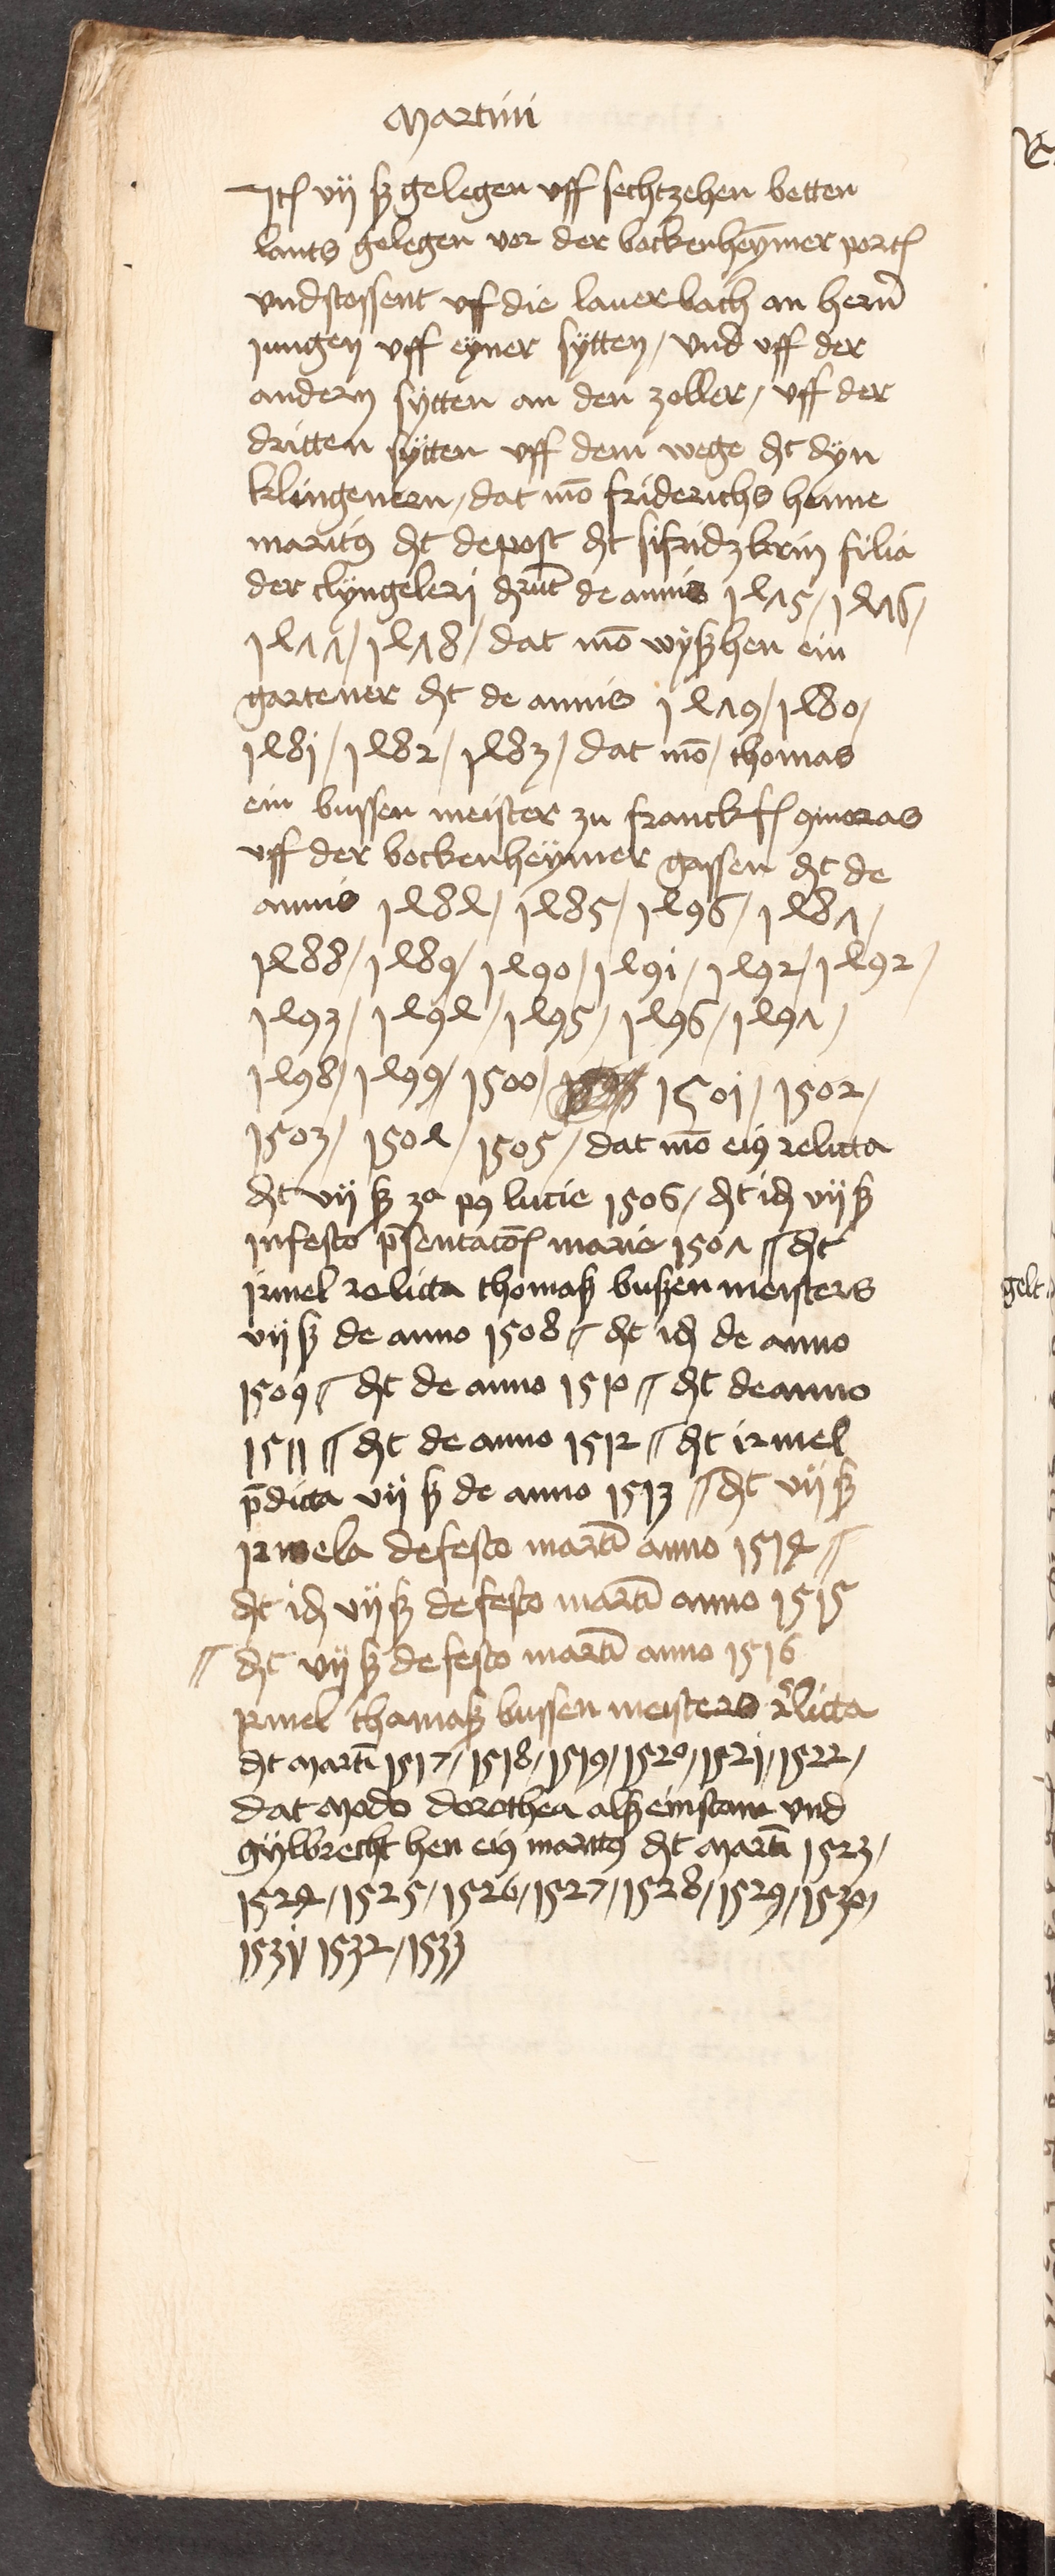 Martini
Itē vij ß gelegen vff sechtzehen betten
lants gelegen vor der bockenheymer portē
vndstossent vff die lauerbach an hern̄
jungen vff eyner sytten / vnd vff der
andern sytten an den zoller / vff der
dritten sytten vff dem wege dt dyn
klingenern / dat mō friderichs henne
maritꝰ dt depost dt sifridz krin filia
der clyngelerj dn̄t de annis 1475 / 1476 /
1477 / 1478 / dat mō wyßhen ein
gartener dt de annis 1479 / 1480 /
1481 / 1482 / 1483 / dat mō / thomas
ein bussen meister zu franckf ꝯmoras
vff der bockenheymer gassen dt de
annis 1484 / 1485 / 1496 / 1487 /
1488 / 1489 / 1490 / 1491 / 1492 / 1492 /
1493 / 1494 / 1495 / 1496 / 1497 /
1498 / 1499 / 1500 / 1501 / 1502 /
1503 / 1504 / 1505 / dat mō eiꝰ relicta
dt vij ß 3a pꝰ lucie 1506 / dt id vij ß
infesto p̄sentacōē marie 1507 // dt
irmel relicta thomaß bußen meisters
vij ß de anno 1508 // dt id de anno
1509 // dt de anno 1510 // dt deanno
1511 // dt de anno 1512 // dt irmel
p̄dicta vij ß de anno 1513 // dt vij ß
irmela defesto martī anno 1514 //
dt id vij ß defesto martī anno 1515
// dt vij ß defesto martī anno 1516
irmel thamaß bussen meisters r̄licta
dt Martī 1517 / 1518 / 1519 / 1520 / 1521 / 1522 /
dat Modo dorothea alß einstam vnd
gylbrecht hen eiꝰ maritꝰ dt Martī 1523 /
1524 / 1525 / 1526 / 1527 / 1528 / 1529 / 1530 /
1531 / 1532 / 1533
gelt